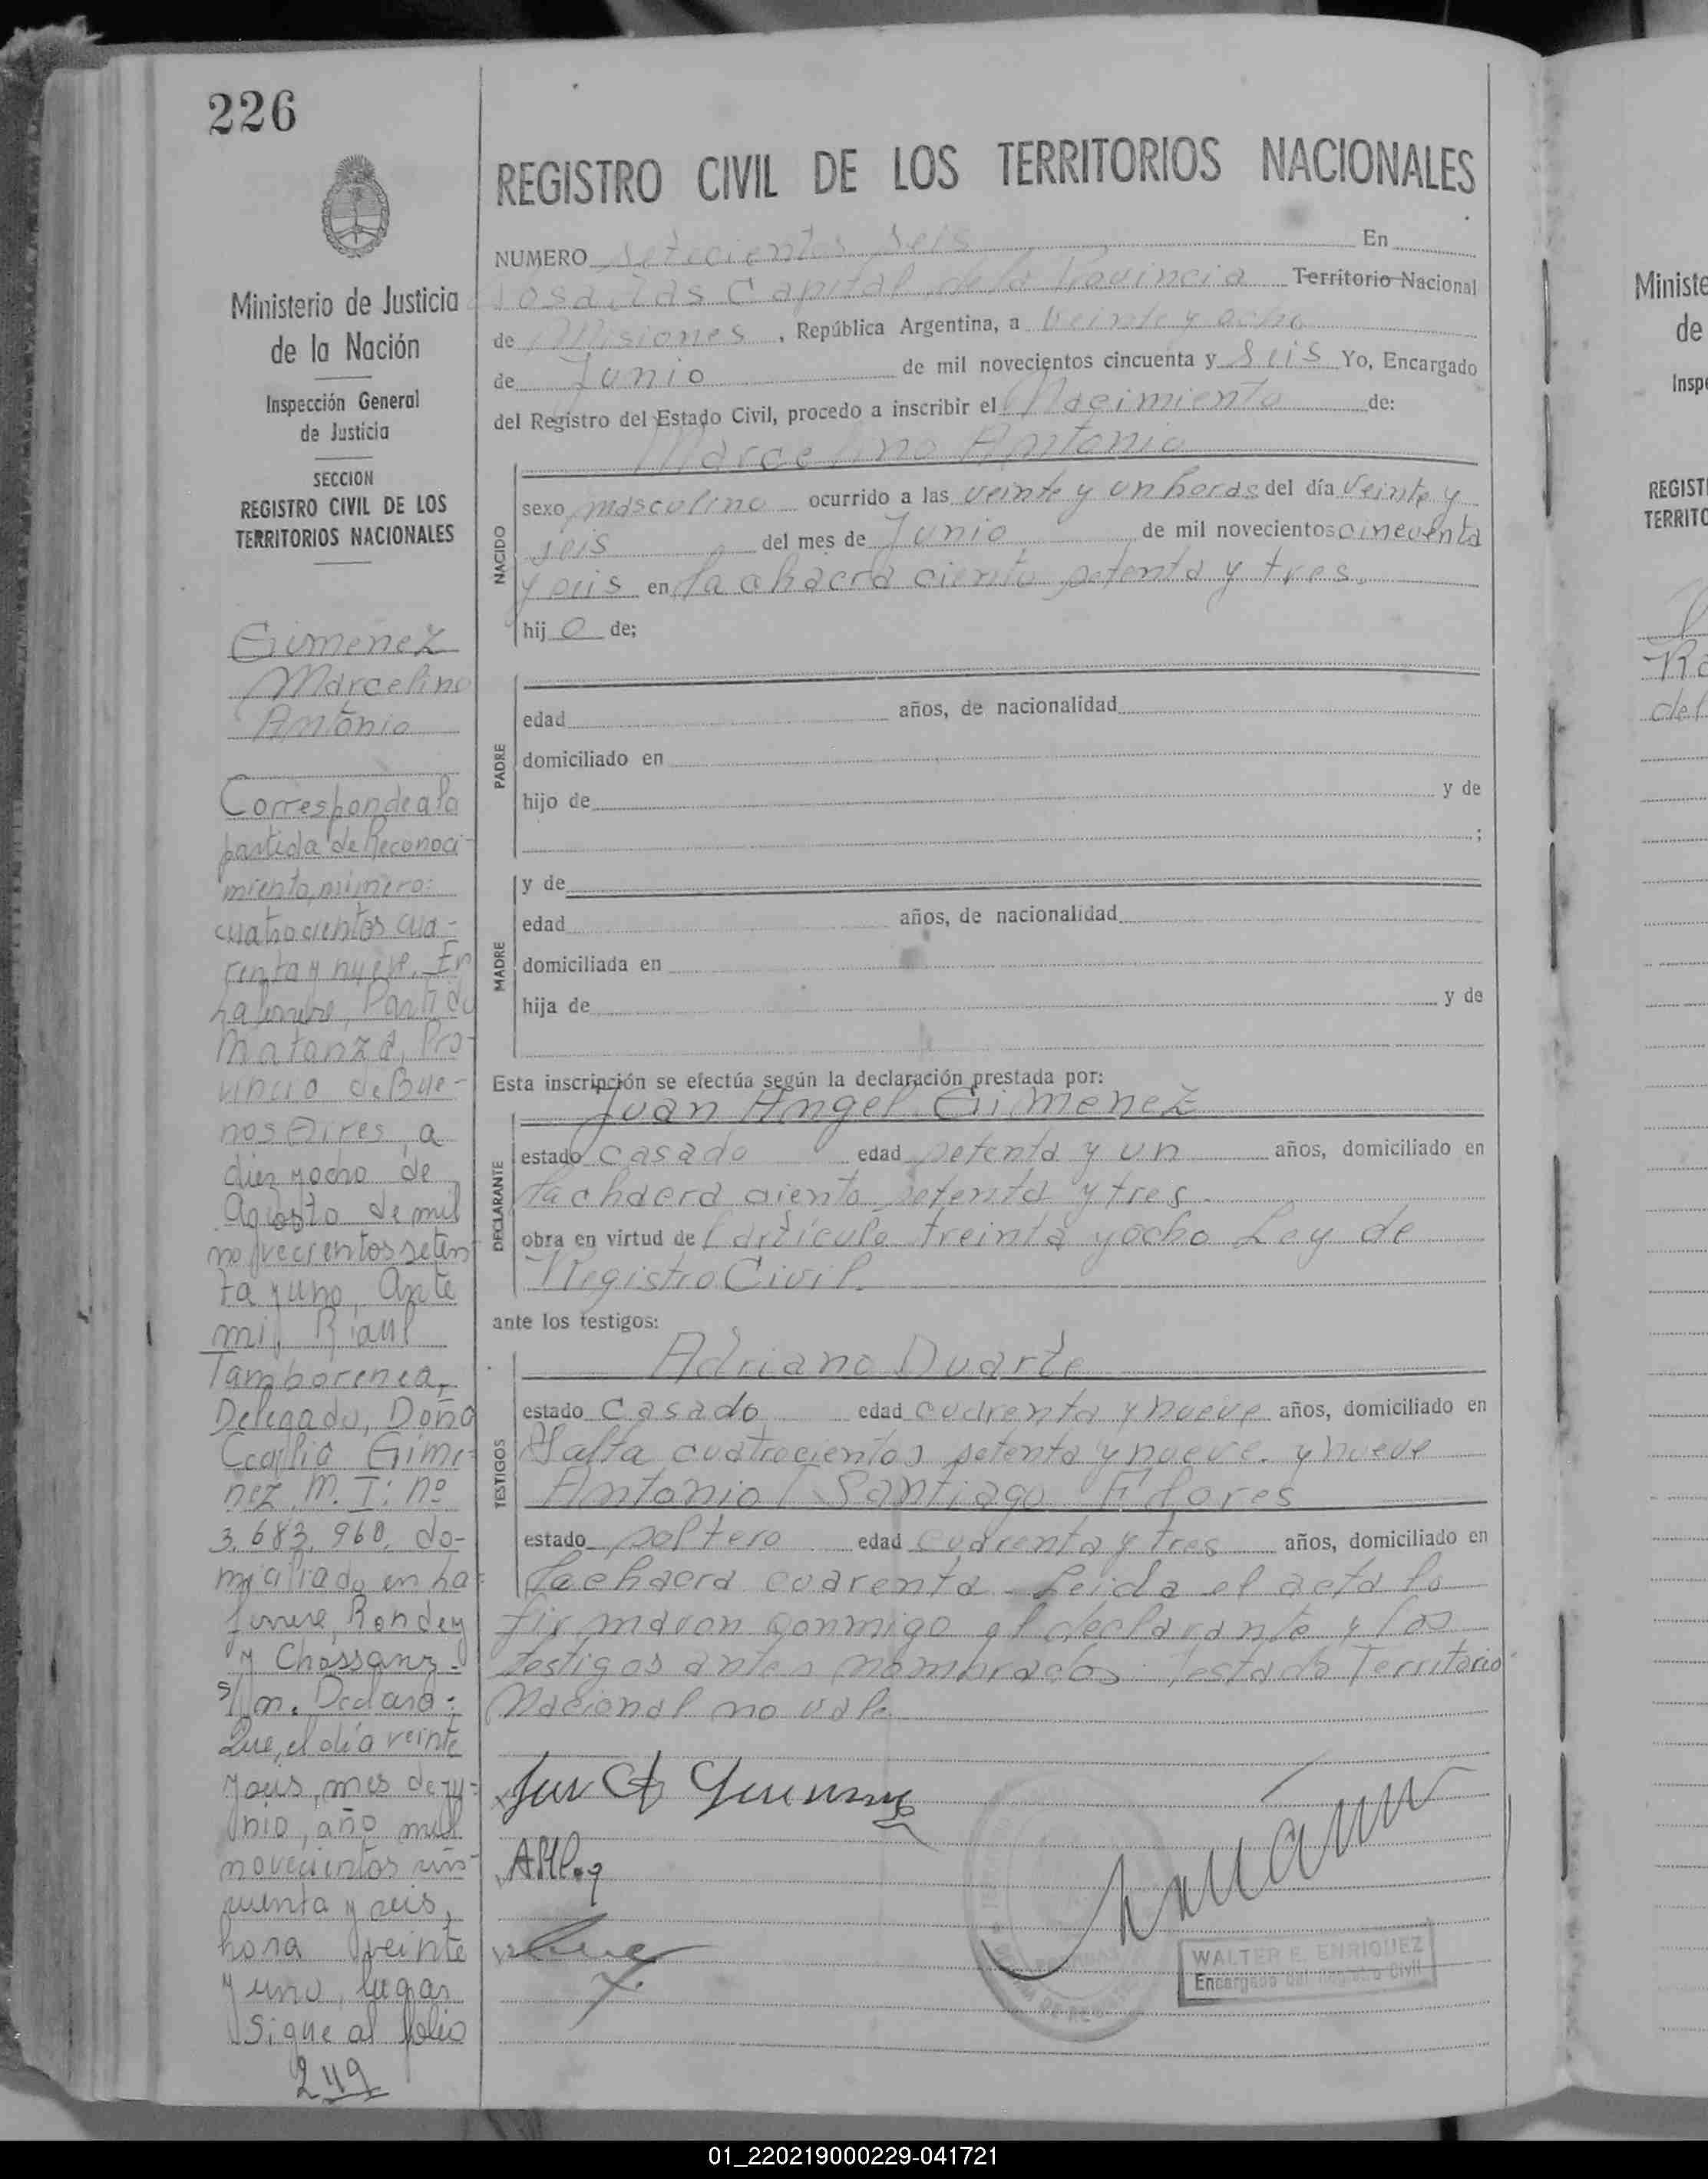 226
Ministerio de Justicia
de la Nación
Inspección General
de Justicia
SECCION
REGISTRO CIVIL DE LOS
TERRITORIOS NACIONALES
Gimenez
Marcelino
Antonio
Corresponde a la
partida de Reconoci-
miento, número:
cuatrocientos cua-
renta y nueve. En
Laferrere, Partido
Matanza, Pro-
vincia de Bue-
nos Aires, a
diez y ocho de
Agosto de mil
novecientos seten
ta y uno, Ante
mi, Raul
Tamborenea,
Delegado, Doña
Cecilia Gime-
nez, M. I: nº
3.683.960, do-
miciliada en La-
ferrere, Rondeau
y Chassaing
s/n. Declara:
Que, el día veinte
y seis, mes de ju-
nio, año mil
novecientos cin-
cuenta y seis,
hora veinte
y uno, lugar
Sigue al folio
249
REGISTRO CIVIL DE LOS TERRITORIOS NACIONALES
NUMERO setecientos seis En
Posadas Capital de la Provincia Territorio Nacional
de Misiones, República Argentina, a veinte y ocho
de Junio de mil novecientos cincuenta y seis Yo, Encargado
del Registro del Estado Civil, procedo a inscribir el Nacimiento de:
Marcelino Antonio
NACIDO
sexo masculino ocurrido a las veinte y un horas del día veinte y
seis del mes de Junio de mil novecientos cincuenta
y seis en la chacra ciento setenta y tres.
hij o de;
PADRE
edad años, de nacionalidad
domiciliado en
hijo de y de
;
MADRE
y de
edad años, de nacionalidad
domiciliada en
hija de y de
Esta inscripción se efectúa según la declaración prestada por:
Juan Angel Gimenez
DECLARANTE
estado casado edad setenta y un años, domiciliado en
la chacra ciento setenta y tres.
obra en virtud del artículo treinta y ocho Ley de
Registro Civil.
ante los testigos:
Adriano Duarte
TESTIGOS
estado casado edad cuarenta y nueve años, domiciliado en
Salta cuatrocientos setenta y nueve. y nueve
Antonio Santiago Flores
estado soltero edad cuarenta y tres años, domiciliado en
la chacra cuarenta. Leida el acta la
firmaron conmigo el declarante y los
testigos antes nombrados. Testado Territorio
Nacional no vale
WALTER E. ENRIQUEZ
Encargado del Registro Civil
Ministe
de
Inspe
REGIST
TERRITO
01_220219000229-041721